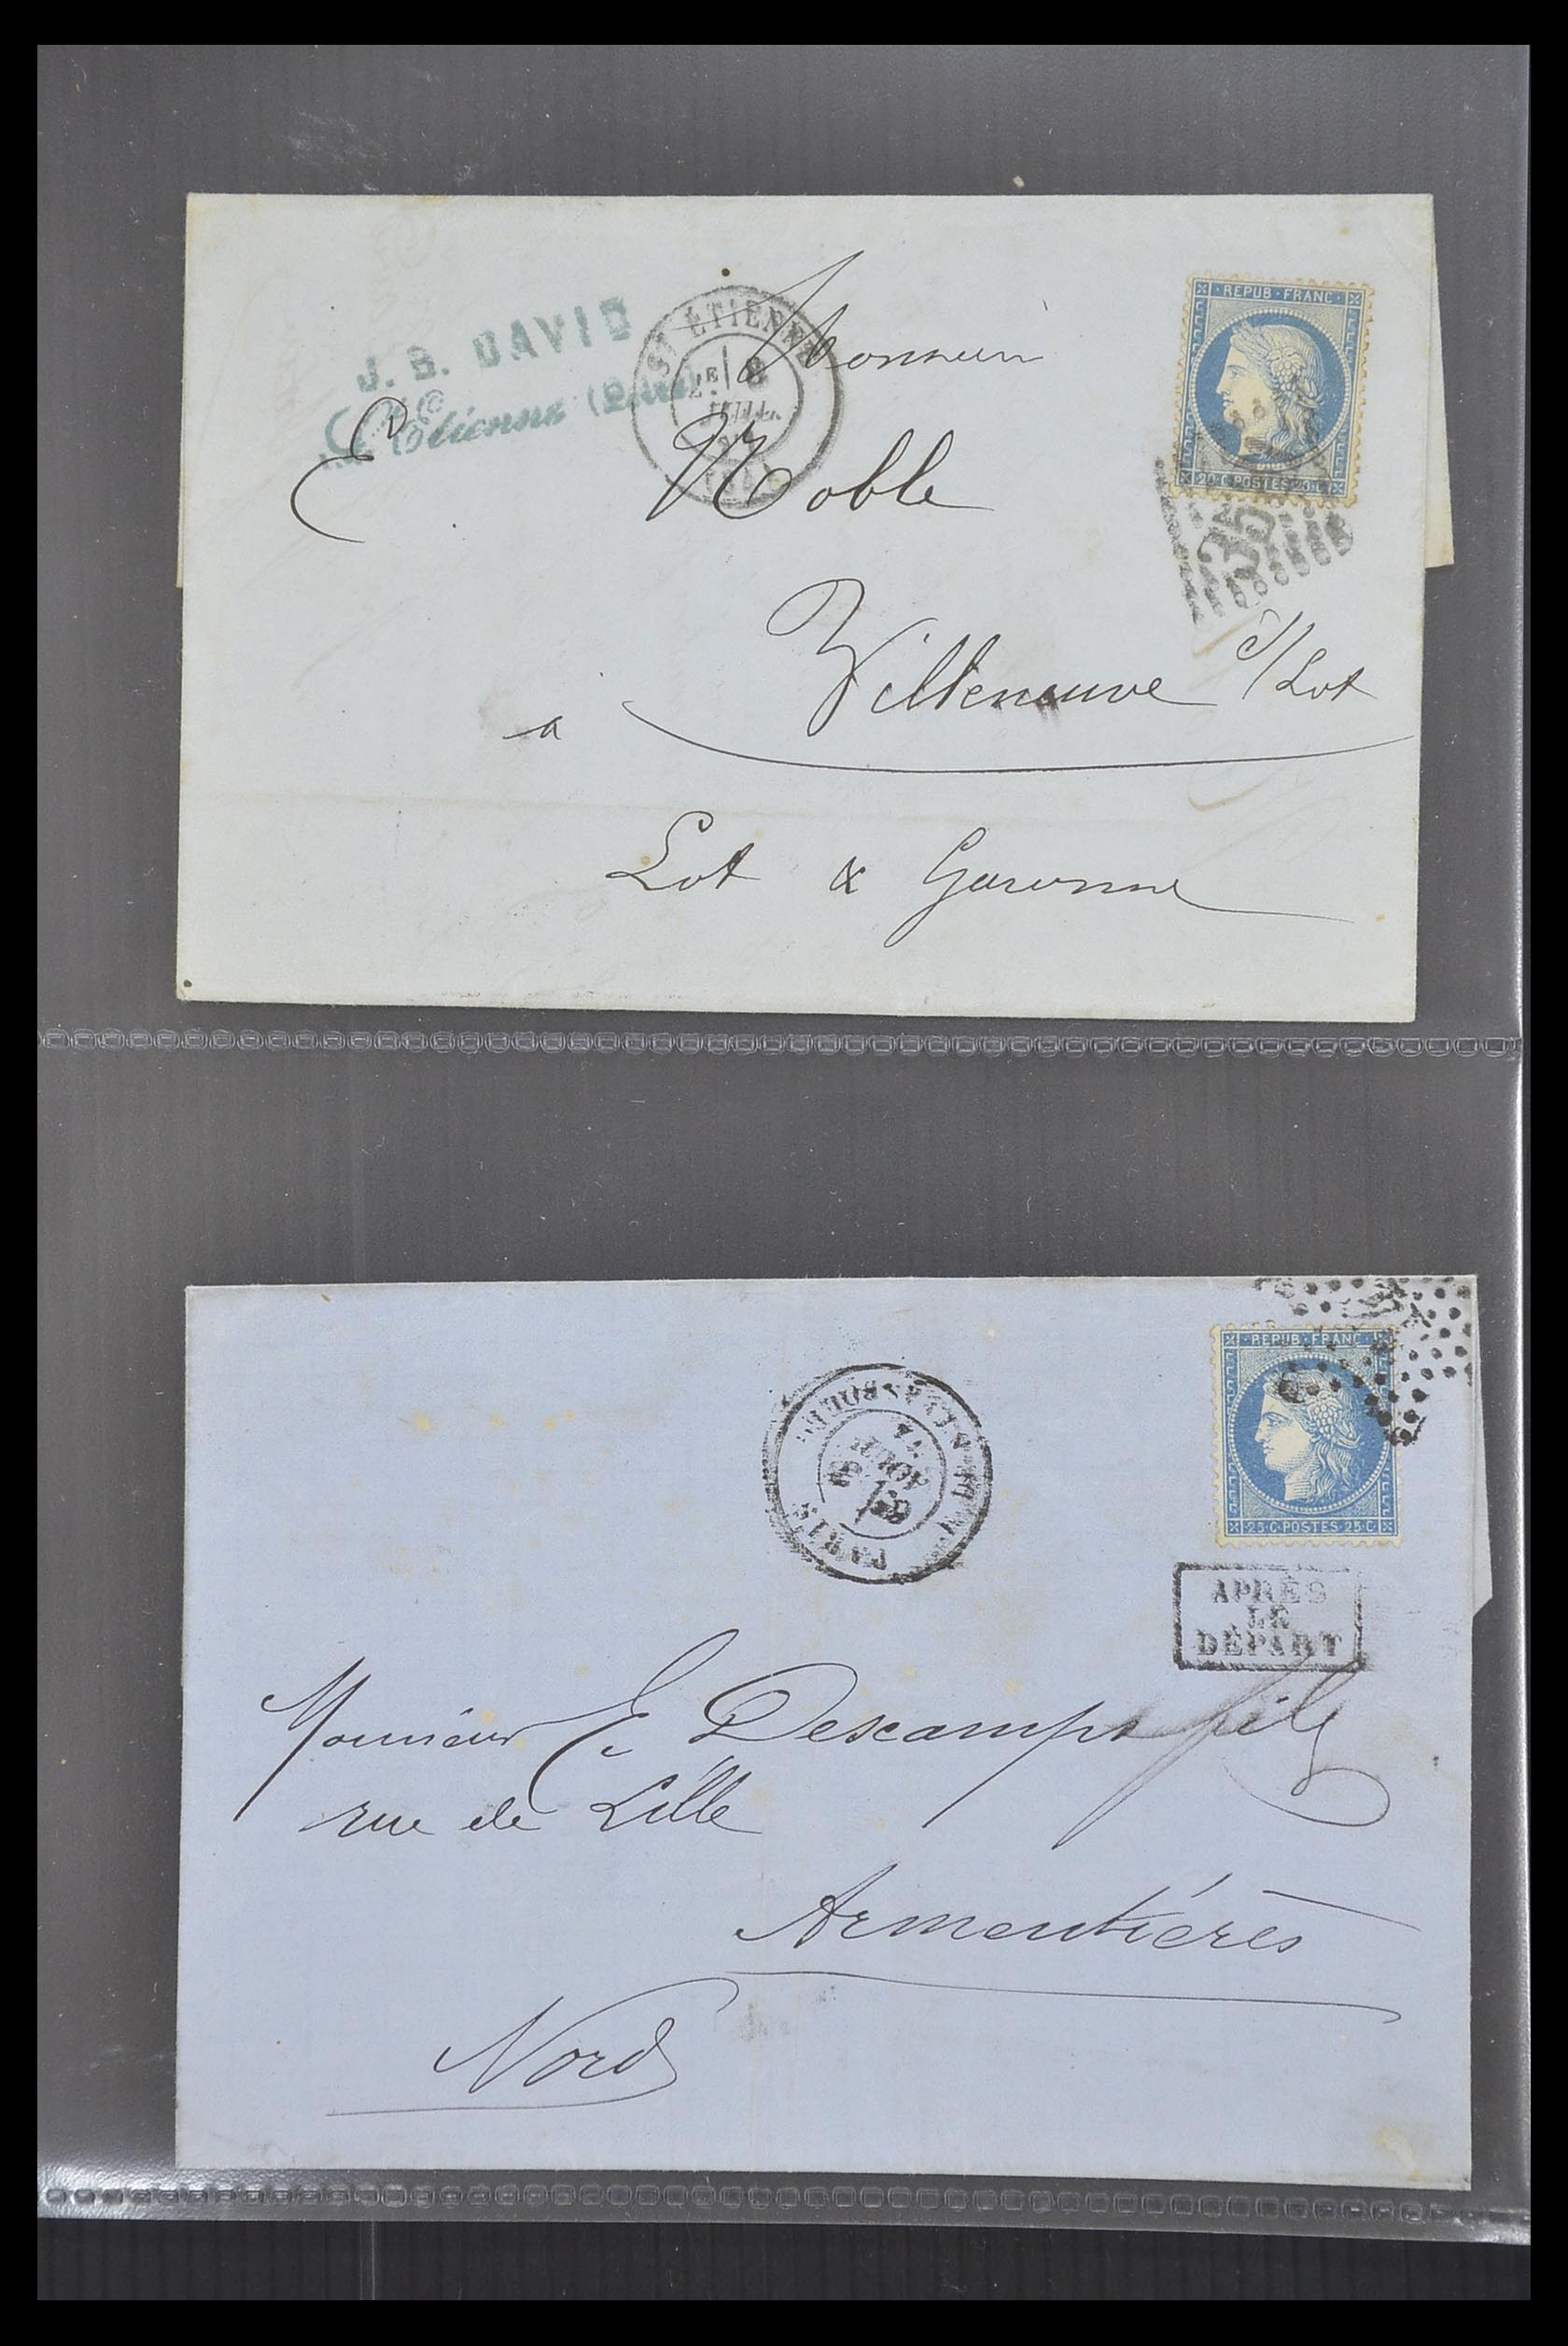 J. B. DAVID
St Étienne (Loire)
ST ÉTIENNE
2E 8
JUIL.
REPUB · FRANC ·
20 · C · POSTES · 20 · C ·
35
Monsieur
E. Noble
a Villeneuve s/Lot
Lot & Garonne
PARIS
REPUB · FRANC ·
25 · C · POSTES · 25 · C ·
APRÈS
LE
DÉPART
Monsieur E. Descamps fils
rue de Lille
Armentiérès
Nord